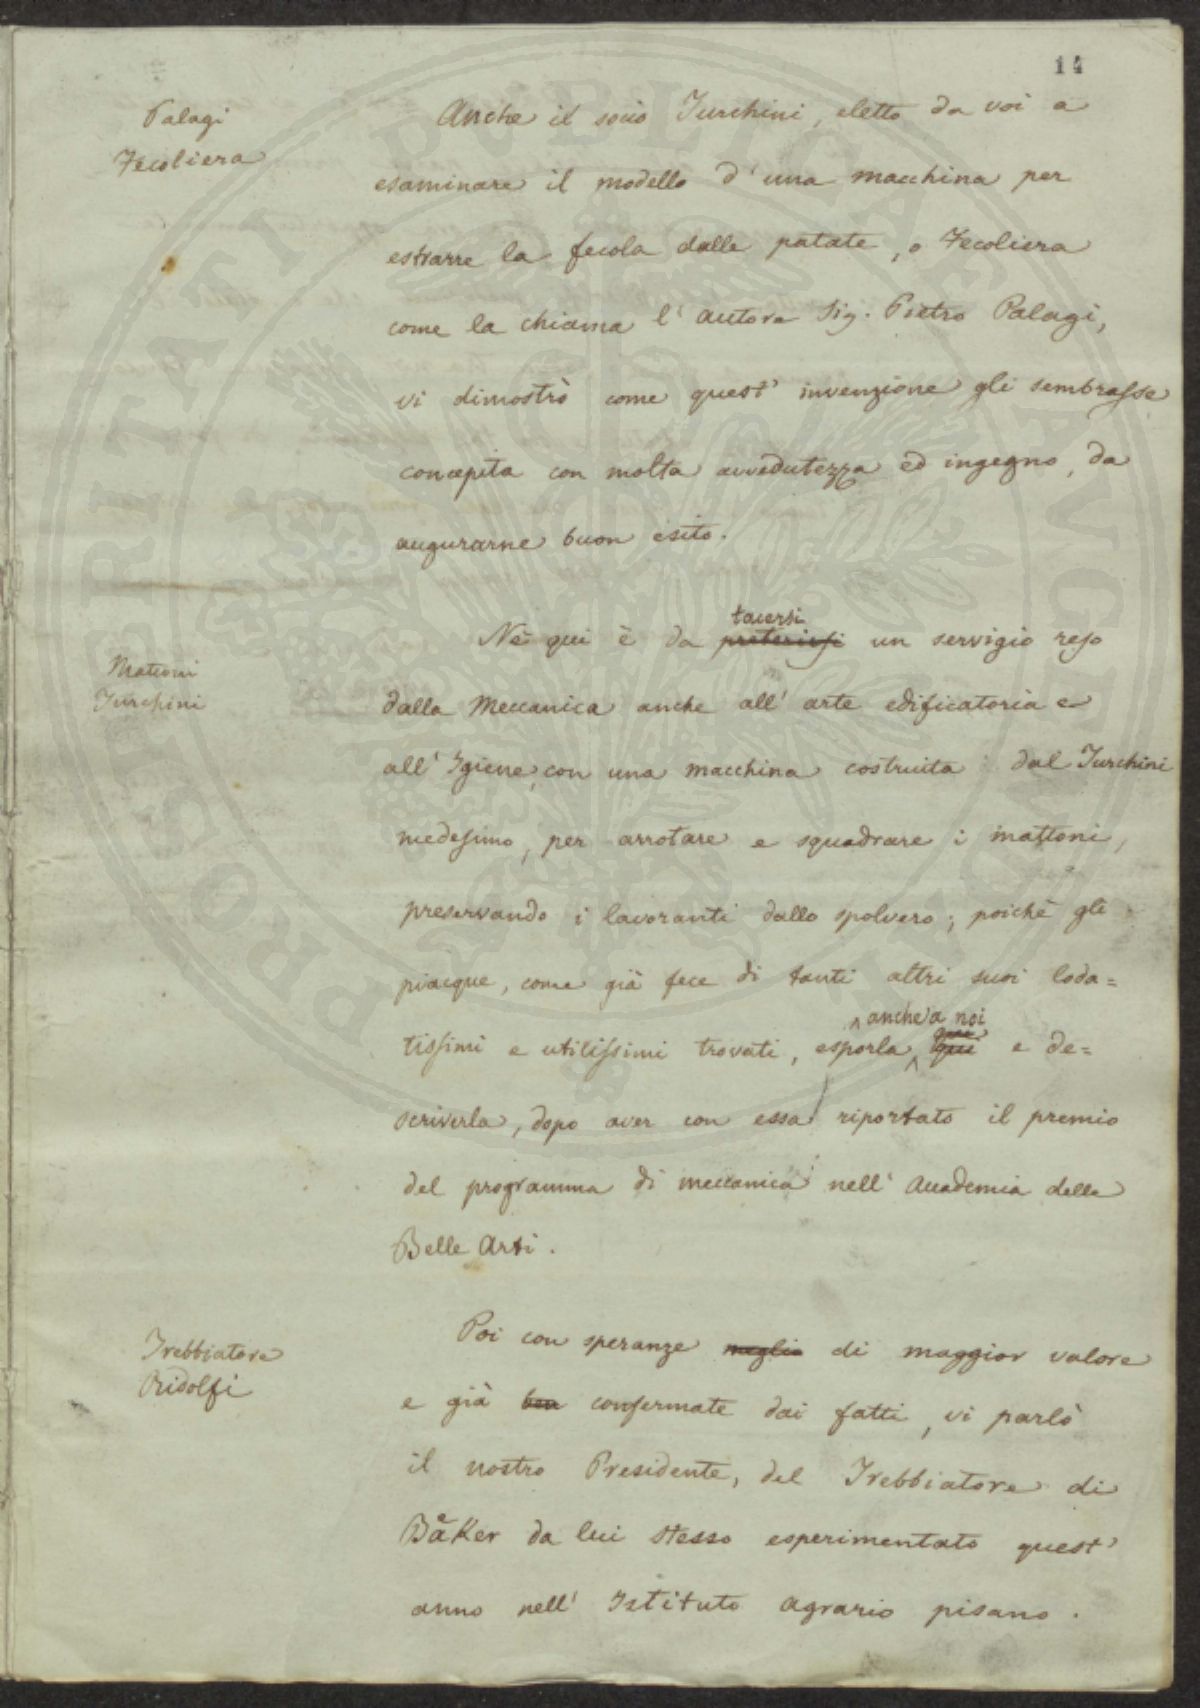 14
Palagi
Fecoliera
Anche il socio Turchini, eletto da voi a
esaminare il modello d'una macchina per
estrarre la fecola dalle patate, o Fecoliera
come la chiama l'autore Sig. Pietro Palagi,
vi dimostrò come quest'invenzione gli sembrasse
concepita con molta avvedutezza ed ingegno, da
augurarne buon esito.
Mattoni
Turchini
tacersi
Nè qui è da preterirsi un servigio reso
dalla Meccanica anche all'arte edificatoria e
all'Igiene, con una macchina costruita dal Turchini
medesimo, per arrotare e squadrare i mattoni,
preservando i lavoranti dallo spolvero; poichè gli
piacque, come già fece di tanti altri suoi loda=
anche a noi
tissimi e utilissimi trovati, esporla, qui e de=
scriverla, dopo aver con essa riportato il premio
del programma di meccanica nell'Accademia delle
Belle Arti.
Trebbiatore
Ridolfi
Poi con speranze meglio di maggior valore
e già ben confermate dai fatti, vi parlò
il nostro Presidente, del Trebbiatore di
Baker da lui stesso esperimentato quest'
anno nell'Istituto agrario pisano.
PROSPERITATI PUBLICAE AUGENDAE